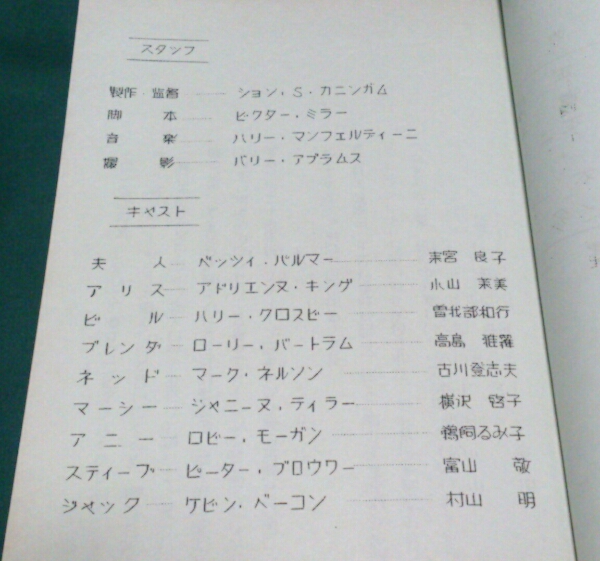 スタッフ
製作・監督 ション・S・カニンガム
脚本 ビクター・ミラー
音楽 ハリー・マンフェルディーニ
撮影 バリー・アブラムス
キャスト
夫人 ベッツィ・パルマー 末宮良子
アリス アドリエンヌ・キング 小山茉美
ビル ハリー・クロスビー 曽我部和行
ブレンダ ローリー・バートラム 高島雅羅
ネッド マーク・ネルソン 古川登志夫
マーシー ジャニーヌ・テイラー 横沢啓子
アニー ロビー・モーガン 鵜飼るみ子
スティーブ ピーター・ブロウワー 富山敬
ジャック ケビン・ベーコン 村山明